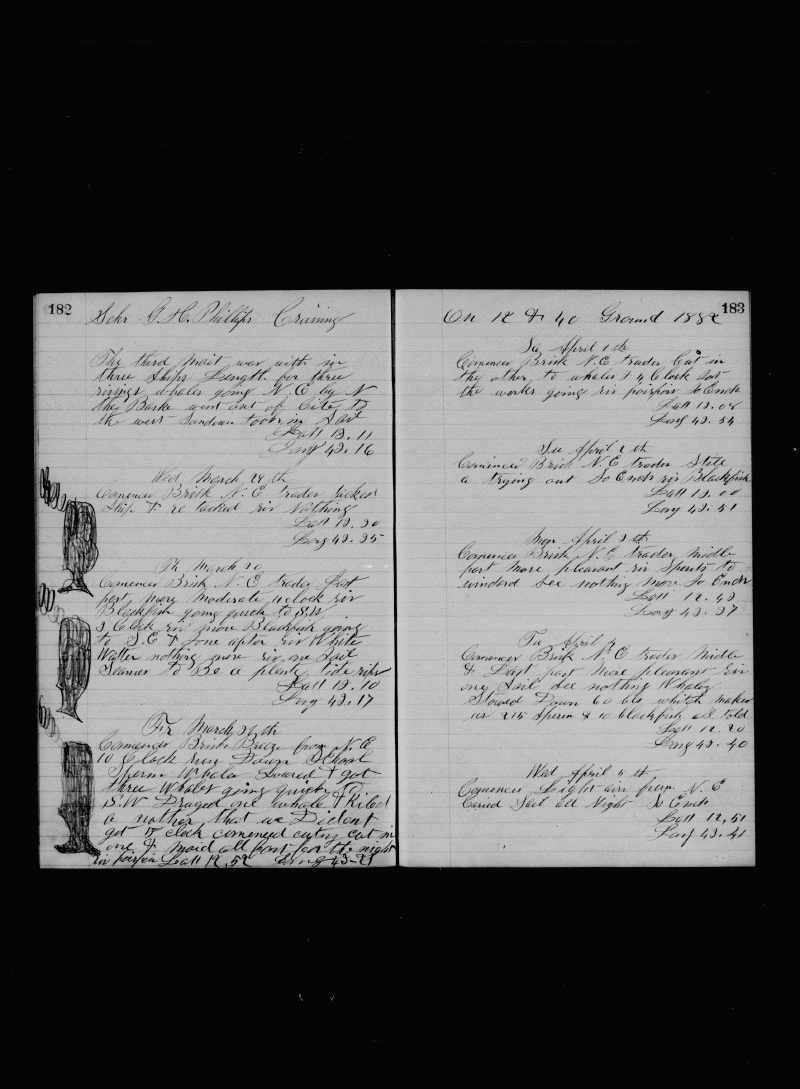 182
Schr G. H. Phillips Cruising
The third mait was with in
three Ships Length for three
risings whales going N. E by N
they Barke went out of Cite to
the west Sundown toock in Sail
Latt 13.11
Long 43.16
Wed March 29 th
Comences Brisk N. E trader tacked
Ship & re tacked sir Nothing
Latt 12.30
Long 43.35
Th March 30
Comences Brisk N. E trader Last
part more moderate oclock sir
Blackfish going quick to S.W
2 Clock sir more Blackfish going
to S. E & Lone after sir White
Watter nothing more sir one Sail
Seames to Be a plenty tide rips
Latt 12.10
Long 43.17
Fri March 31 th
Comences Brisk Breeze from N. E
10 Clock run Down School
Sperm Whales Loured & got
three Whales going quick to
S. W Draged one whale & Kiled
a nother that we Dident
got 5 clock comenced cuting cut in
one & maid all fast for the night
sir poirpoir Latt 12.52 Long 43-21
183
On 12 & 40 Ground 1882
Sat April 1 th
Comences Brisk N. E trader Cut in
they other to whales & 4 Clock Got
the works going sir poirpoir So Ends
Latt 13.08
Long 43.54
Su April 2 th
Comences Brisk N. E trader Still
a trying out So Ends sir Blackfish
Latt 13.00
Long 43.51
Mon April 3 th
Comences Brisk N. E trader Middle
part More pleasant sir Spouts to
winderd see nothing More So Ends
Latt 12.43
Long 43.37
Tu April 4
Comences Brisk N. E trader Middle
& Last part More pleasant sir
one Sail see nothing Whaley
Stowed Down 60 bls whitch makes
us 215 Sperm & 10 blackfish all told
Latt 12.20
Long 43.40
Wed April 5 th
Comences Light air from N. E
Caried Sail all Night So Ends
Latt 12,51
Long 43.41